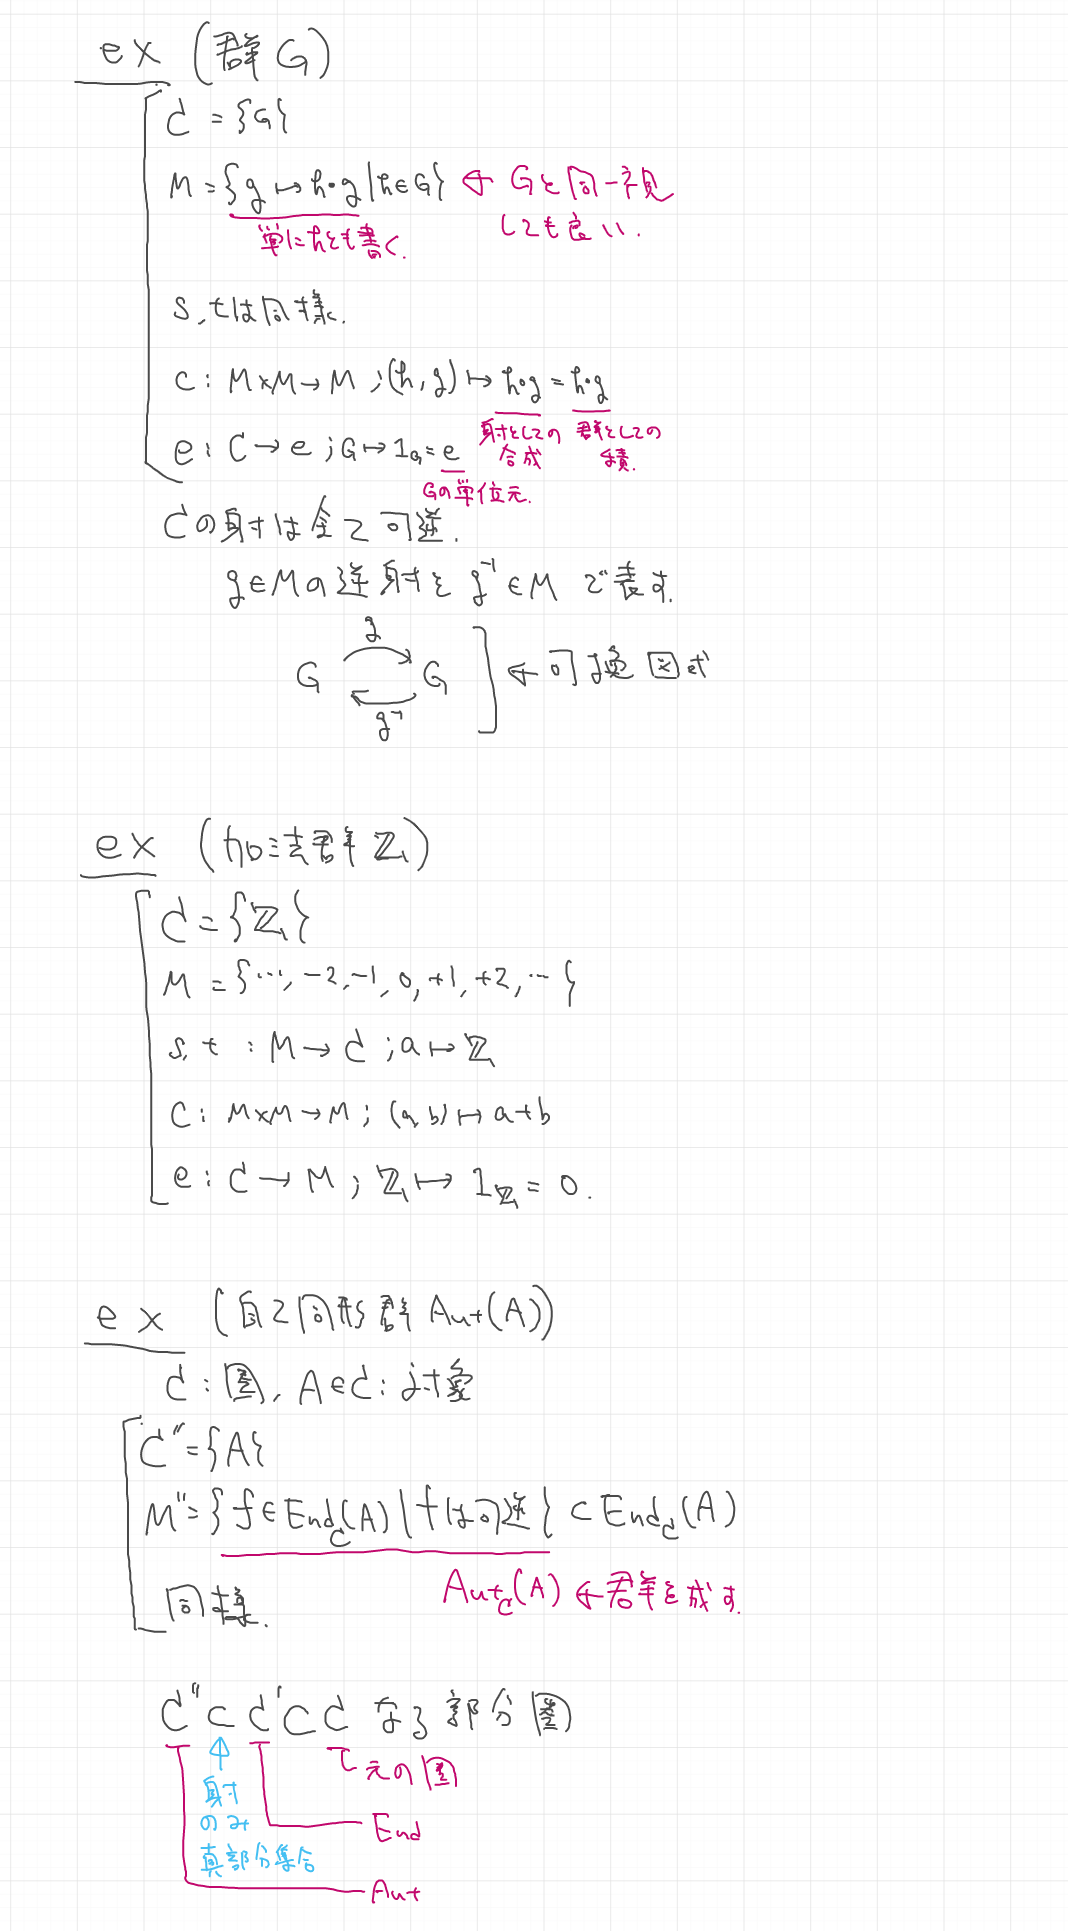 ex (群G)
C = {G}
M = {g ↦ h・g | h∈G} ← Gと同一視
しても良い.
単にhとも書く.
s, tは同様.
c : M×M → M ; (h, g) ↦ h∘g = h・g
射としての合成 群としての積.
e : C → e ; G ↦ 1_G = e
Gの単位元.
Cの射は全て可逆.
g∈Mの逆射を g⁻¹∈M で表す.
g
G G ← 可換図式
g⁻¹
ex (加法群 ℤ)
C = {ℤ}
M = {…, -2, -1, 0, +1, +2, … }
s, t : M → C ; a ↦ ℤ
c : M×M → M ; (a, b) ↦ a+b
e : C → M ; ℤ ↦ 1_ℤ = 0.
ex (自己同形群 Aut(A))
C : 圏, A∈C : 対象
C'' = {A}
M'' = {f∈End_C(A) | fは可逆} ⊂ End_C(A)
Aut_C(A) ← 群を成す.
同様.
C'' ⊂ C' ⊂ C なる部分圏
元の圏
射
のみ
End
真部分集合
Aut